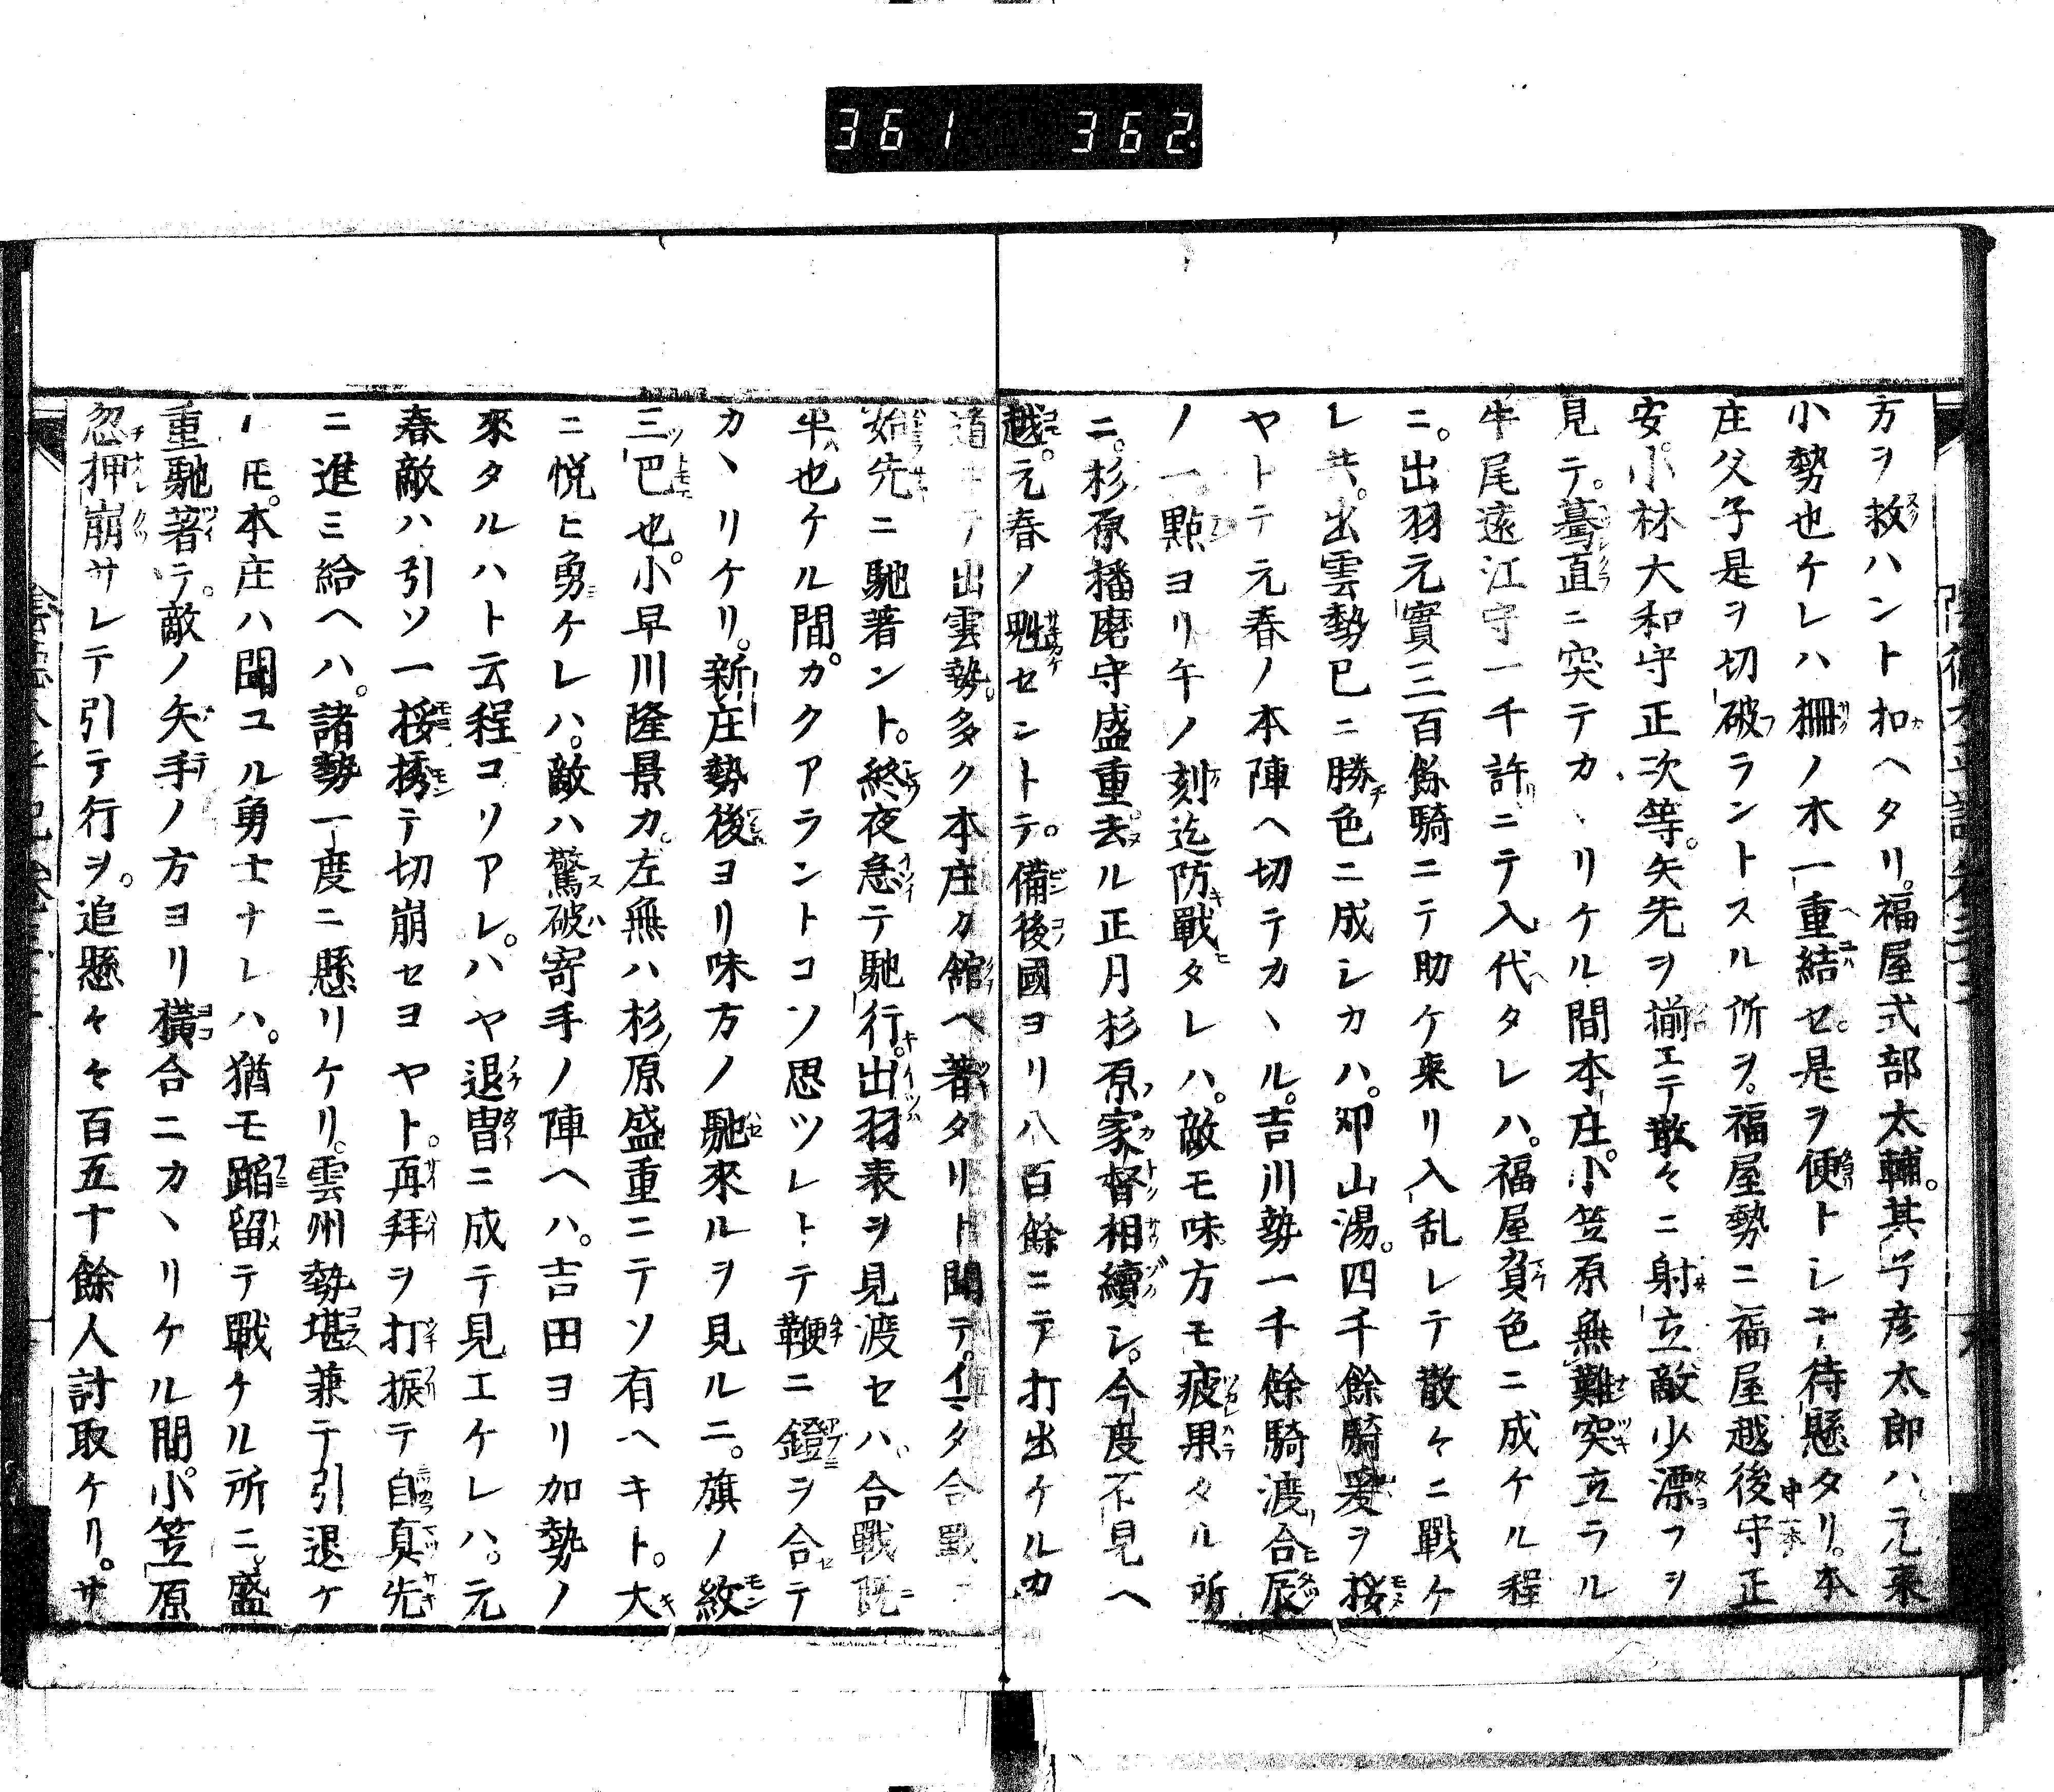 361 362
方ヲ救ハント扣ヘタリ。福屋式部太輔。其子彦太郎ハ元来
小勢也ケレハ柵ノ木一重結セ。是ヲ便トシテ待懸タリ。本
庄父子是ヲ切破ラントスル所ヲ。福屋勢ニ福屋越後守正
安。小林大和守正次等。矢先ヲ揃エテ散々ニ射立敵少漂フヲ
見テ。驀直ニ突テカヽリケル間本庄。小笠原無難突立ラル
牛尾遠江守一千許ニテ入代タレハ。福屋負色ニ成ケル程
ニ。出羽元實三百餘騎ニテ助ケ来リ入乱レテ散々ニ戰ケ
レ共。出雲勢已ニ勝色ニ成シカハ。卯山湯。四千餘騎爰ヲ接
ヤトテ元春ノ本陣ヘ切テカヽル。吉川勢一千餘騎渡合辰
ノ一點ヨリ午ノ刻迄防戰タレハ。敵モ味方モ疲果タル所
ニ。杉原播磨守盛重去ル正月杉原家督相續シ。今度不見ヘ
越。元春ノ魁セントテ。備後國ヨリ八百餘ニテ打出ケルカ
道ニテ出雲勢。多ク本庄カ館ヘ著タリト聞テ。イマタ合戰ニ
始先ニ馳著ント。終夜急テ馳行。出羽表ヲ見渡セハ合戰既
半也ケル間。カクアラントコソ思ツレトテ鞭ニ鐙ヲ合テ
カヽリケリ。新庄勢後ヨリ味方ノ馳來ルヲ見ルニ。旗ノ紋
三巴也。小早川隆景カ。左無ハ杉原盛重ニテソ有ヘキト。大
ニ悦ヒ勇ケレハ。敵ハ驚破寄手ノ陣ヘハ。吉田ヨリ加勢ノ
來タルハト云程コリアレ。ハヤ退冑ニ成テ見エケレハ。元
春敵ハ引ソ一接撈テ切崩セヨヤト。再拜ヲ打振テ自真先
ニ進ミ給ヘハ。諸勢一度ニ懸リケリ。雲州勢堪兼テ引退ケ
レ𪜈。本庄ハ聞ユル勇士ナレハ。猶モ蹈留テ戰ケル所ニ。盛
重馳著テ。敵ノ矢手ノ方ヨリ橫合ニカヽリケル間。小笠原
忽押崩サレテ引テ行ヲ。追懸々々百五十餘人討取ケリ。サ